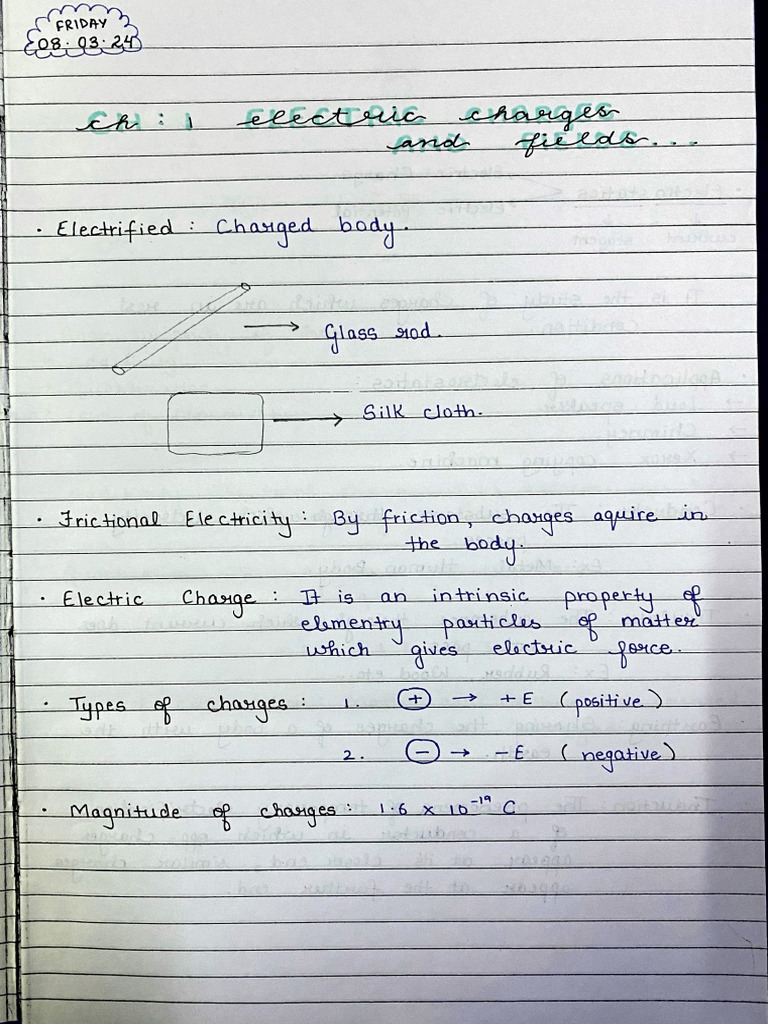 FRIDAY
08.03.24
Ch : 1 electric charges
and fields...
· Electrified : Charged body.
→ Glass rod.
→ Silk cloth.
· Frictional Electricity : By friction, charges aquire in
the body.
· Electric Charge : It is an intrinsic property of
elementry particles of matter
which gives electric force.
· Types of charges : 1. + → +E (positive)
2. − → −E (negative)
· Magnitude of charges : 1.6 × 10⁻¹⁹ C